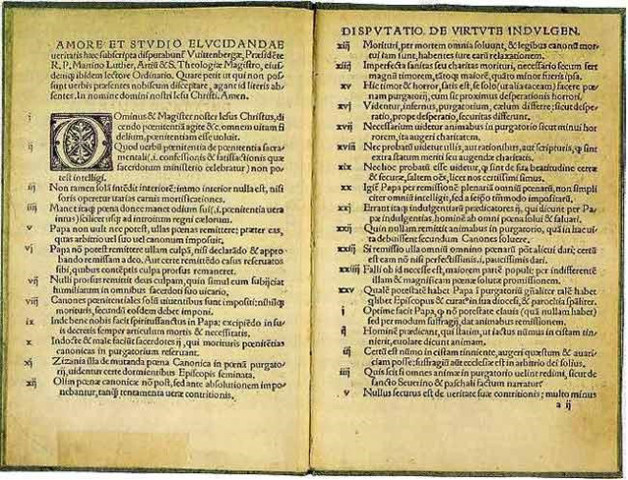 AMORE ET STVDIO ELVCIDANDAE
ueritatis hæc subscripta disputabunť Vuittenbergæ, Præsidēte
R. P. Martino Luther, Artiū & S. Theologiæ Magistro, eius-
demq; ibidem lectore Ordinario. Quare petit ut qui non pos-
sunt uerbis præsentes nobiscum disceptare, agant id literis ab-
sentes. In nomine domini nostri Iesu Christi. Amen.
i Dominus & Magister noster Iesus Christus, di-
cendo pœnitentiā agite &c. omnem uitam fi
delium, pœnitentiam esse uoluit.
ij Quod uerbū pœnitentia de pœnitentia sacra-
mentali (.i. confessionis & satisfactionis quæ
sacerdotum ministerio celebratur) non po-
test intelligi.
iij Non tamen solā intēdit interiorē: immo interior nulla est, nisi
foris operetur uarias carnis mortificationes.
iiij Manet itaq; pœna donec manet odium sui (.i. pœnitentia uera
intus) scilicet usq; ad introitum regni cœlorum.
v Papa non uult nec potest, ullas pœnas remittere: præter eas,
quas arbitrio uel suo uel canonum imposuit.
vj Papa nō potest remittere ullam culpā, nisi declarādo & appro
bando remissam a deo. Aut certe remittēdo casus reseruatos
sibi, quibus contēptis culpa prorsus remaneret.
vij Nulli prorsus remittit deus culpam, quin simul eum subijciat
humiliatum in omnibus sacerdoti suo uicario.
viij Canones pœnitentiales solū uiuentibus sunt impositi: nihilq;
morituris, secundū eosdem debet imponi.
ix Inde bene nobis facit spiritussanctus in Papa: excipiēdo in su-
is decretis semper articulum mortis & necessitatis.
x Indocte & male faciūt sacerdotes ij, qui morituris pœnitētias
canonicas in purgatorium reseruant.
xj Zizania illa de mutanda pœna Canonica in pœnā purgato-
rij, uidentur certe dormientibus Episcopis seminata.
xij Olim pœnæ canonicæ nō post, sed ante absolutionem impo-
nebantur, tanq̄ tentamenta ueræ contritionis.
DISPVTATIO. DE VIRTVTE INDVLGEN.
xiij Morituri, per mortem omnia soluunt, & legibus canonū mor-
tui iam sunt, habentes iure earū relaxationem.
xiiij Imperfecta sanitas seu charitas morituri, necessario secum fert
magnū timorem, tātoq; maiorē, quāto minor fuerit ipsa.
xv Hic timor & horror, satis est, se solo (ut alia taceam) facere pœ-
nam purgatorij, cum sit proximus desperationis horrori.
xvj Videntur, infernus, purgatorium, cælum differre: sicut despe-
ratio, prope desperatio, securitas differunt.
xvij Necessarium uidetur animabus in purgatorio sicut minui hor-
rorem, ita augeri charitatem.
xviij Nec probatū uidetur ullis, aut rationibus, aut scripturis, q̄ sint
extra statum meriti seu augendæ charitatis.
xix Nec hoc probatū esse uidetur, q̄ sint de sua beatitudine certæ
& securæ, saltem oēs, licet nos certissimi simus.
xx Igiť Papa per remissionē plenariā omniū pœnarū, non simpli
citer omniū intelligit, sed a seipso tātummodo impositarū.
xxj Errant itaq; indulgentiarū prædicatores ij, qui dicunt per Pa-
pæ indulgentias, hominē ab omni pœna solui & saluari.
xxij Quin nullam remittit animabus in purgatorio, quā in hac ui-
ta debuissent secundum Canones soluere.
xxiij Si remissio ulla omniū omnino pœnarū pōt alicui dari; certū
est eam nō nisi perfectissimis .i. paucissimis dari.
xxiiij Falli ob id necesse est, maiorem partē populi: per indifferentē
illam & magnificam pœnæ solutæ promissionem.
xxv Qualē potestatē habet Papa ī purgatoriū gñaliter talē habet
q̄libet Episcopus & curatꝰ in sua diocesi, & parochia sp̄āliter.
i Optime facit Papa, q̄ nō potestate clauis (quā nullam habet)
sed per modum suffragij, dat animabus remissionem.
ij Hominē prædicant, qui statim, ut iactus nūmus in cistam tin-
nierit, euolare dicunt animam.
iij Certū est nūmo in cistam tinniente, augeri quæstum & auari-
ciam posse: suffragiū aūt ecclesiæ est in arbitrio dei solius.
iiij Quis scit si omnes animæ in purgatorio uelint redimi, sicut de
sancto Seuerino & paschali factum narratur
v Nullus securus est de ueritate suæ contritionis; multo minus
a ij